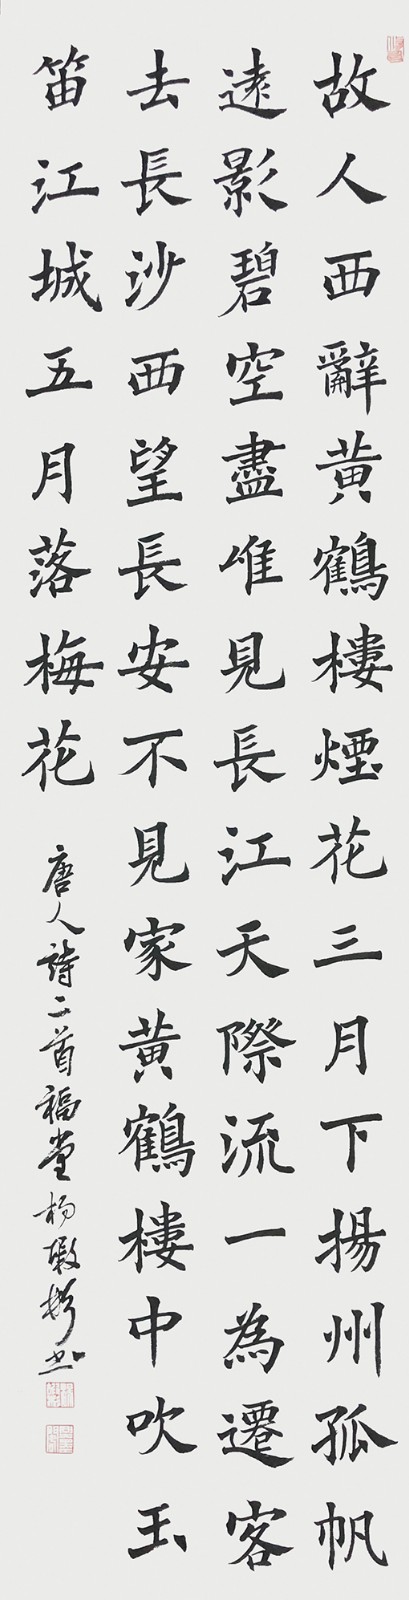 故人西辭黄鶴樓煙花三月下揚州孤帆
遠影碧空盡唯見長江天際流一為遷客
去長沙西望長安不見家黄鶴樓中吹玉
笛江城五月落梅花
唐人詩二首福堂杨